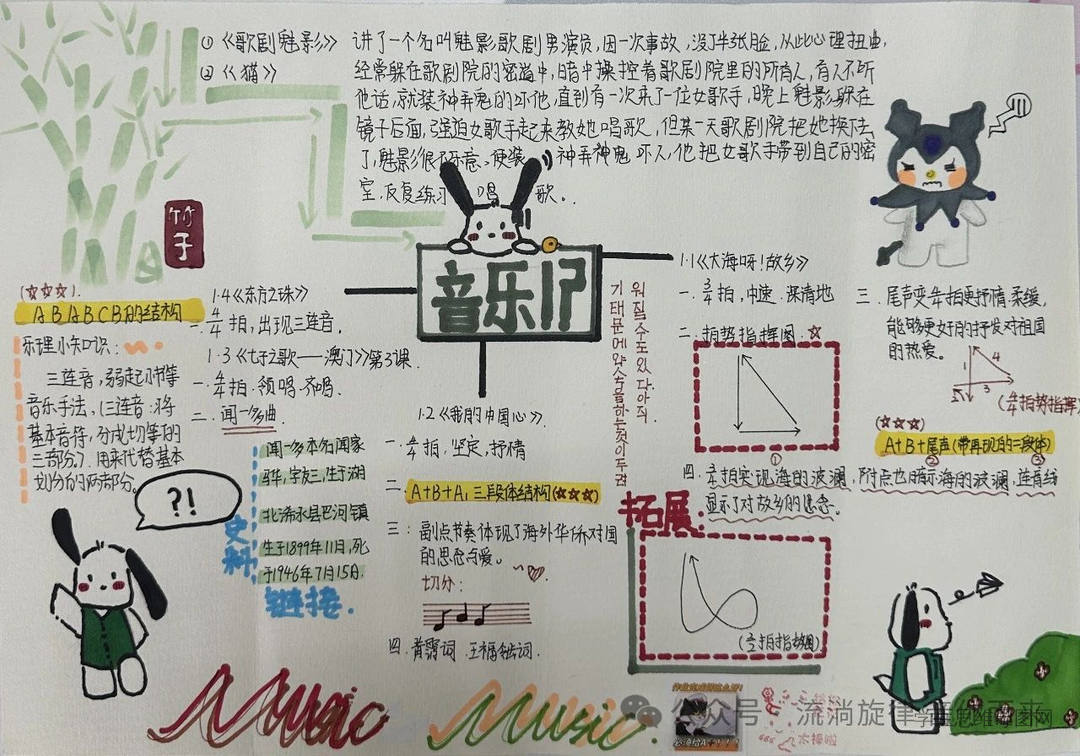 ①《歌剧魅影》
②《猫》
讲了一个名叫魅影歌剧男演员,因一次事故,没了半张脸,从此心理扭曲,
经常躲在歌剧院的密道中,暗中操控着歌剧院里的所有人,有人不听
他话,就装神弄鬼的吓他,直到有一次来了一位女歌手,晚上魅影躲在
镜子后面,强迫女歌手起来教她唱歌,但某一天歌剧院把她换下去
了,魅影很不乐意、便装神弄神鬼吓人,他把女歌手带到自己的密
室,反复练习唱歌..
竹子
音乐!?
(☆☆☆).
ABABCB的结构
乐理小知识:
三连音,弱起小节等
音乐手法,(三连音:将
基本音符,分成均等的
三部分),用来代替基本
划分的两部分。
?!
1.4《东方之珠》
一.4/4拍,出现三连音.
1.3《七子之歌——澳门》第3课.
一.4/4拍.领唱.齐唱.
二.闻一多曲.
闻一多本名闻家
骅,字友三,生于湖
北浠水县巴河镇
生于1899年11月,死
于1946年7月15日.
史料
链接.
1.2《我的中国心》.
一.4/4拍.坚定,抒情
二.A+B+A1三段体结构(☆☆☆)
三:副点节奏体现了海外华侨对国
的思念与爱。
切分:
四.黄霑词.王福龄词.
1.1《大海呀!故乡》
一.3/4拍,中速.深情地
二.拍势指挥图.☆
①
四.
拍实现海的波澜,附点也暗示海的波澜,连音线
显示了对故乡的思念.
拓展:
三.尾声变
拍更抒情.柔缓,
能够更好的抒发对祖国
的热爱。
1
4
3
(4/4拍势指挥
(☆☆☆)
A+B+尾声(带再现的二段体)
②
③
Music
Music
公众号·流淌旋律
学生思维导图网